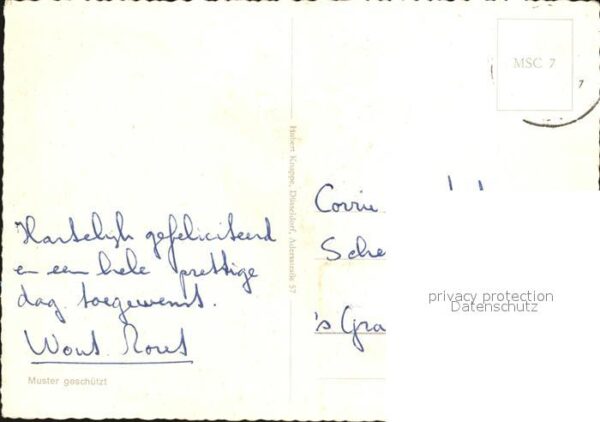 MSC 7
7
Hubert Knappe, Düsseldorf, Adersstraße 57
Hartelijk gefeliciteerd
en een hele prettige
dag toegewenst.
Wout
Corrie
Sche
's Gra
privacy protection
Datenschutz
Muster geschützt